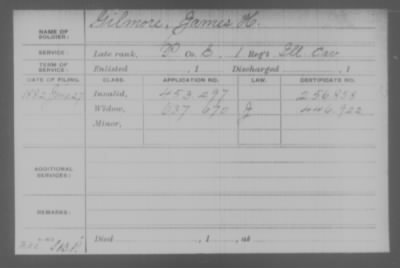 NAME OF SOLDIER: Gilmore, James H.
SERVICE: Late rank, P Co. E, 1 Reg't Ill Cav
TERM OF SERVICE: Enlisted , 1 Discharged , 1
DATE OF FILING. CLASS. APPLICATION NO. LAW. CERTIFICATE NO.
1882 Invalid, 453 297 256.858
Widow, 637 672 446.922
Minor,
ADDITIONAL SERVICES:
REMARKS:
Died , 1 , at